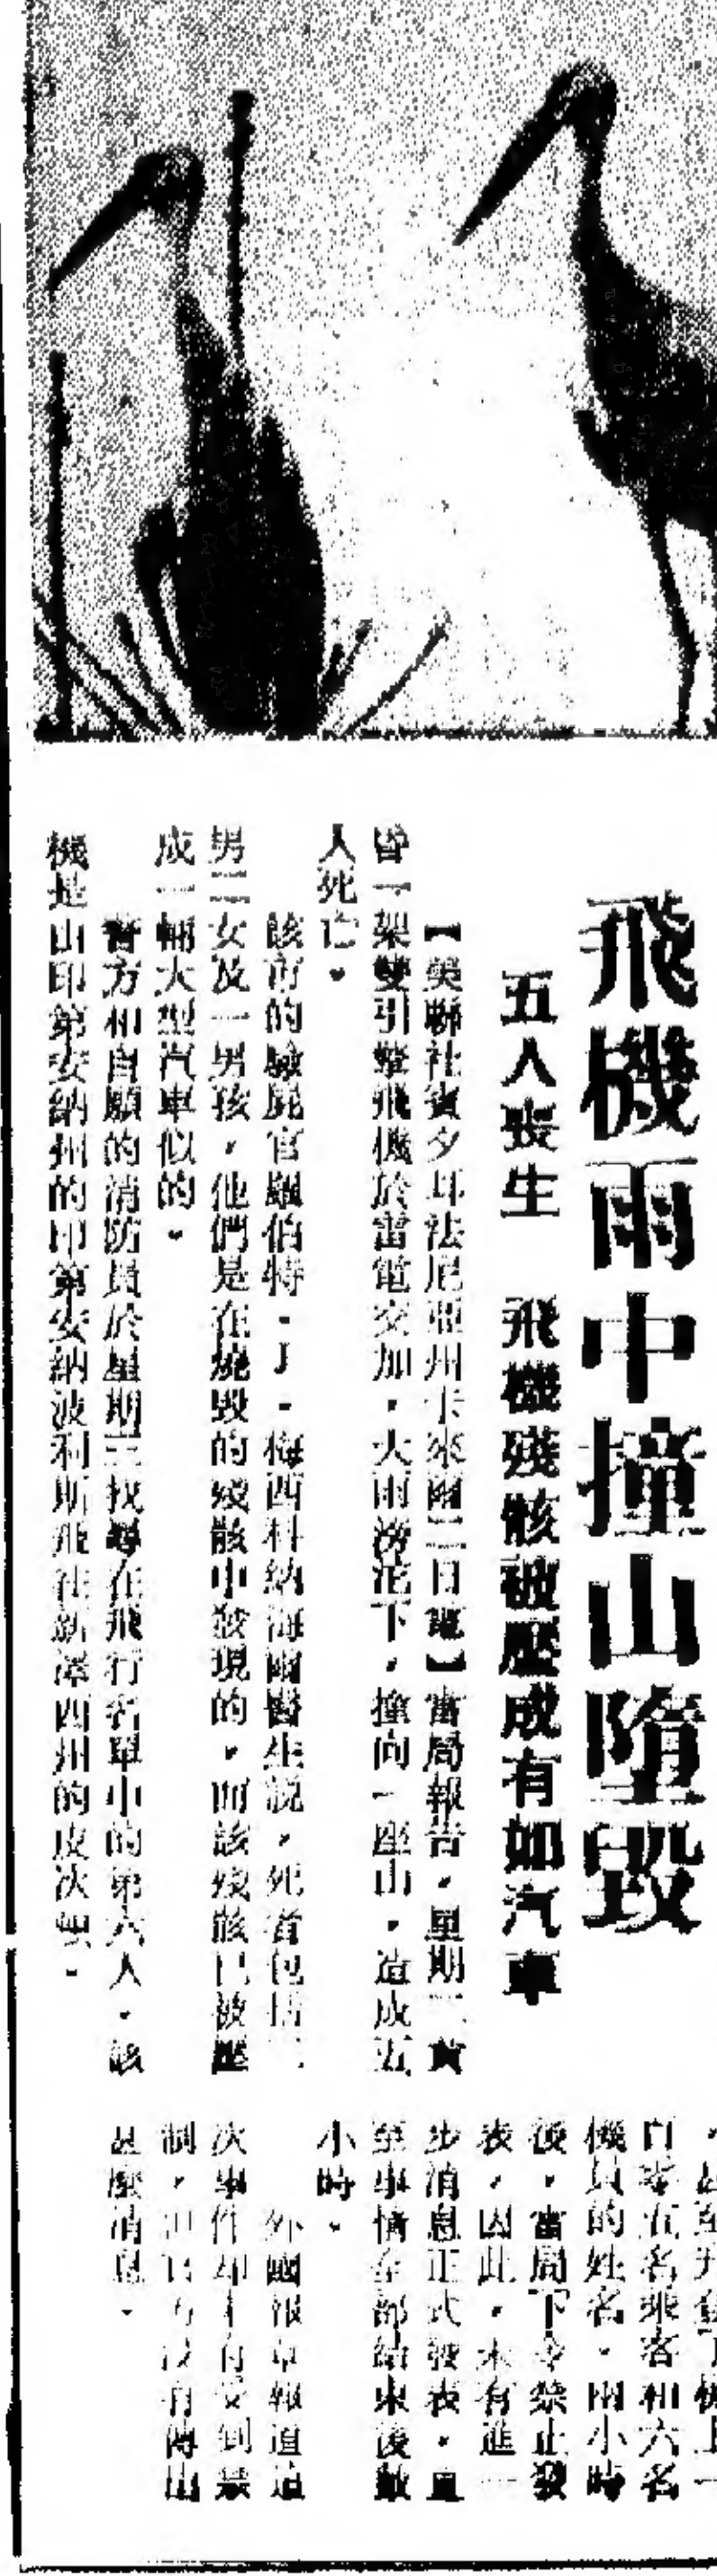 飛機雨中撞山墮毀
五人喪生　飛機殘骸被壓成有如汽車
【美聯社賓夕法尼亞州卡來爾二日電】當局報告，星期二黃
昏一架雙引擎飛機於雷電交加，大雨滂沱下，撞向一座山，造成五
人死亡。
該市的驗屍官羅伯特·J·梅西科納海爾醫生說，死者包括二
男二女及一男孩，他們是在燒毀的殘骸中發現的，而該殘骸已被壓
成一輛大型汽車似的。
警方和自願的消防員於星期三找尋在飛行名單中的第六人，該
機是由印第安納州的印第安納波利斯飛往新澤西州的皮次頓。
機上一
百零五名乘客和六名
機員的姓名。兩小時
後，當局下令禁止發
表，因此，未有進一
步消息正式發表，直
至事情全部結束後數
小時。
外國報章報道這
次事件却未有受到禁
制，但官方沒有傳出
甚麼消息。